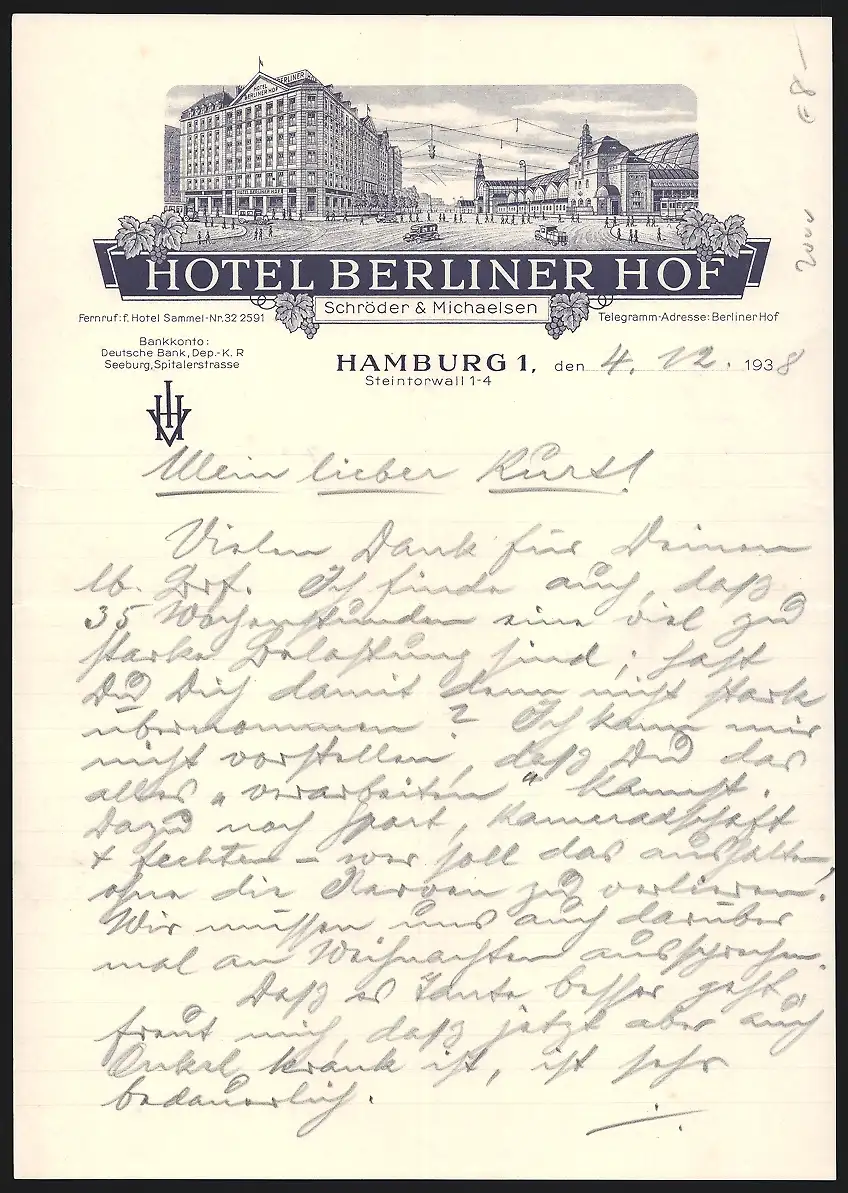 HOTEL BERLINER HOF
BERLINER HOF
HOTEL BERLINER HOF
HOTEL BERLINER HOF
Schröder & Michaelsen
Fernruf: f. Hotel Sammel-Nr. 32 2591
Telegramm-Adresse: Berliner Hof
Bankkonto:
Deutsche Bank, Dep.-K. R
Seeburg, Spitalerstrasse
HAMBURG 1, den 4. 12. 1938
Steintorwall 1-4
Mein lieber Kurt!
Vielen Dank für Deinen
lb. Brf. Ich finde auch, daß
35 Wochenstunden eine viel zu
starke Belastung sind; hast
Du Dich damit denn nicht stark
übernommen? Ich kann mir
nicht vorstellen, daß Du das
alles „verarbeiten“ kannst.
Dazu noch Sport, Kameradschaft
+ fechten – wer soll das aushalten,
ohne die Nerven zu verlieren.
Wir müssen uns auch darüber
mal an Weihnachten aussprechen.
Daß es Tante besser geht,
freut mich, daß jetzt aber auch
Onkel krank ist, ist sehr
bedauerlich.